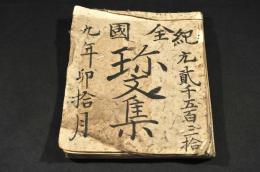 紀元貳千五百三拾
全國
珎文集
九年卯拾月